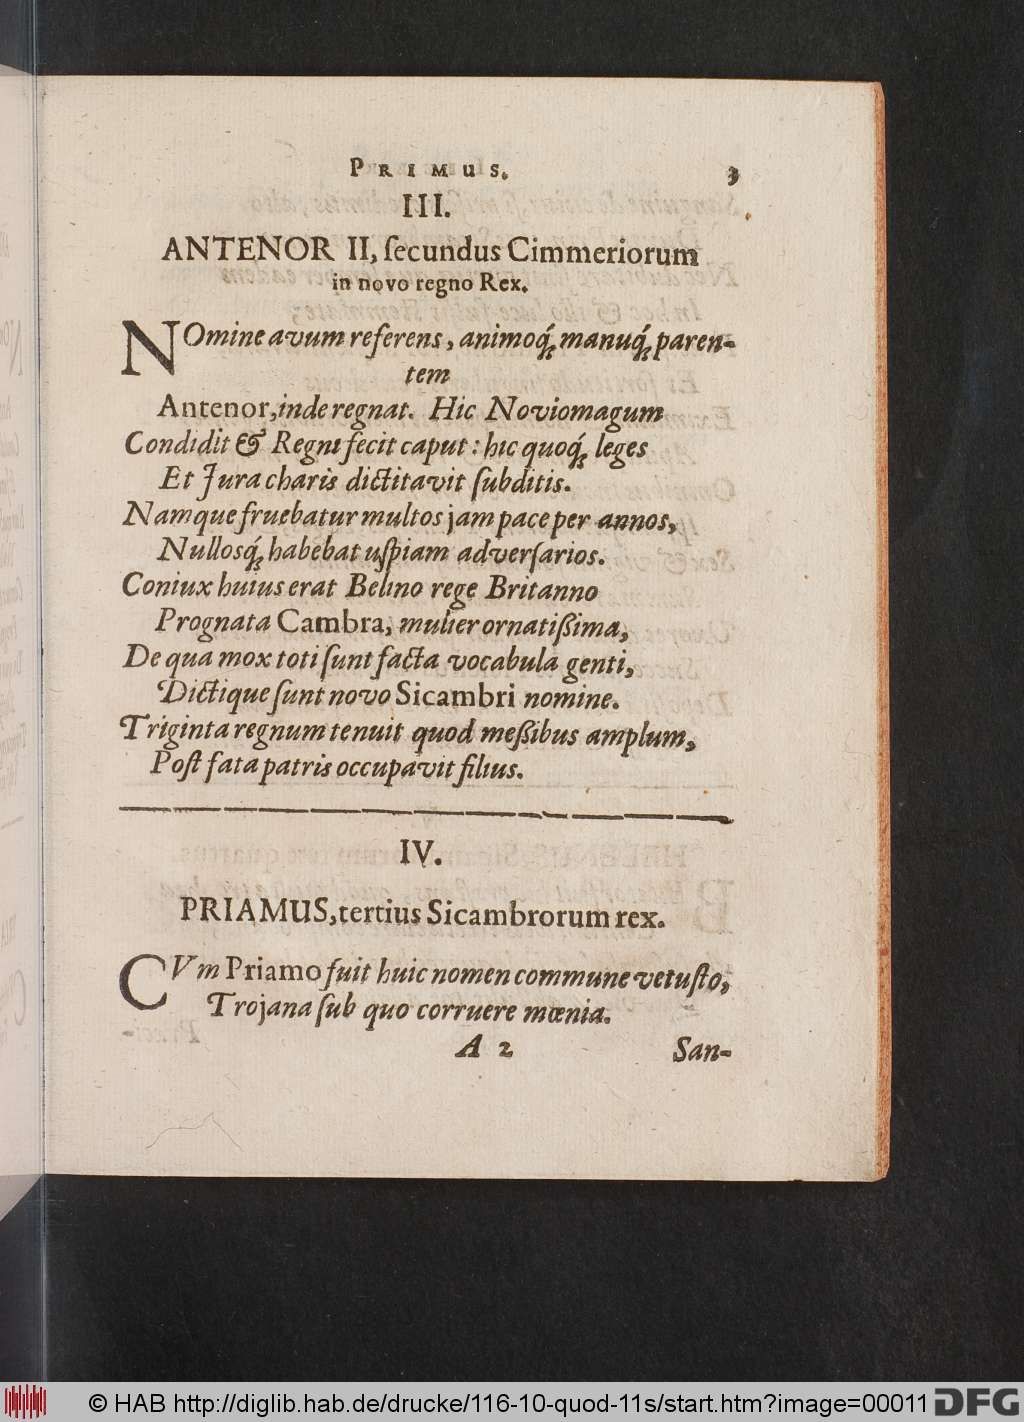 PRIMUS. 3
III.
ANTENOR II, ſecundus Cimmeriorum
in novo regno Rex.
NOmine avum referens, animoq́; manuq́; paren-
tem
Antenor, inde regnat. Hic Noviomagum
Condidit & Regni fecit caput: hic quoq́; leges
Et Jura charis dictitavit ſubditis.
Namque fruebatur multos jam pace per annos,
Nullosq́; habebat uſpiam adverſarios.
Coniux huius erat Belino rege Britanno
Prognata Cambra, mulier ornatißima,
De qua mox toti ſunt facta vocabula genti,
Dictique ſunt novo Sicambri nomine.
Triginta regnum tenuit quod meßibus amplum,
Poſt fata patris occupavit filius.
IV.
PRIAMUS, tertius Sicambrorum rex.
CVm Priamo fuit huic nomen commune vetuſto,
Trojana ſub quo corruere mœnia.
A 2 San-
© HAB http://diglib.hab.de/drucke/116-10-quod-11s/start.htm?image=00011 DFG